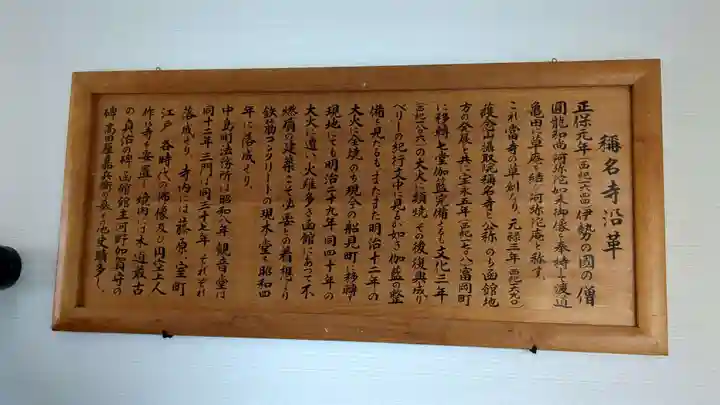 稱名寺沿革
正保元年(西紀一六四四)伊勢の國の僧
圓龍和尚阿弥陀如来御像を奉持して渡道
亀田に草庵を結び阿弥陀庵と称す。
これ當寺の草創なり、元禄三年(西紀一六九〇)
護念山攝取院稱名寺と公称のち函館地
方の発展と共に宝永五年(西紀一七〇八)富岡町
に移轉七堂伽藍完備するも文化三年
(西紀一八〇六)の大火に類焼、その後復興成り
ペリーの紀行文中に見るが如き伽藍の整
備を見たるも、またまた明治十二年の
大火に全焼のち現今の船見町に移轉
現地にても明治二十九年、同四十年の
大火に遭い、火難多き函館にあって不
燃質の建築こそ必要との着想により
鉄筋コンクリートの現本堂を昭和四
年に落成せり。
中島町法務所は昭和八年、観音堂は
同十二年、三門は同三十七年、それぞれ
落成せり。寺内には藤原、室町
江戸各時代の佛像及び円空上人
作仏等を安置し境内には本道最古
の貞治の碑、函館館主河野加賀守の
碑、高田屋嘉兵衛の墓その他史蹟多し。